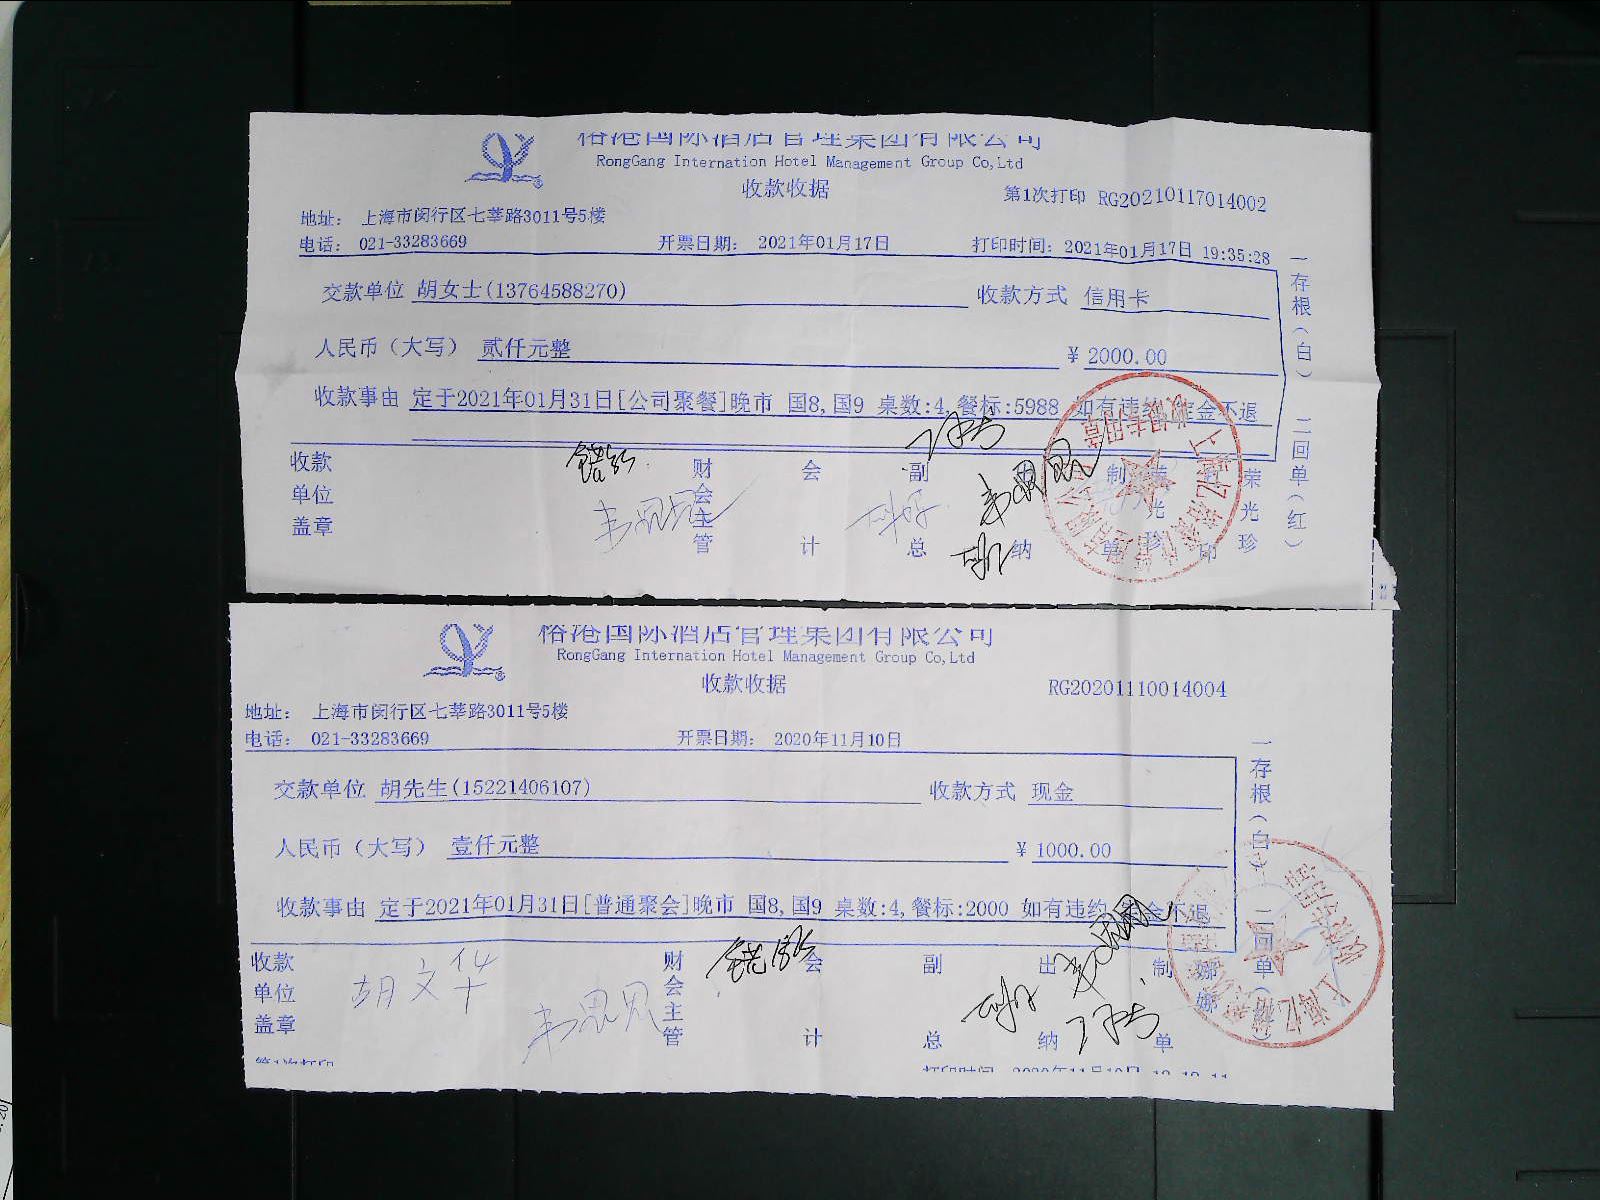 裕港国际酒店管理集团有限公司
RongGang Internation Hotel Management Group Co,Ltd
收款收据
第1次打印 RG20210117014002
地址： 上海市闵行区七莘路3011号5楼
电话： 021-33283669 开票日期： 2021年01月17日 打印时间：2021年01月17日 19:35:28
交款单位 胡女士(13764588270) 收款方式 信用卡
人民币（大写） 贰仟元整 ¥ 2000.00
收款事由 定于2021年01月31日[公司聚餐]晚市 国8,国9 桌数:4,餐标:5988 如有违约 定金不退
一存根（白） 二回单（红）
收款单位盖章 财会主管 会计 副总 纳 制单 荣光珍 印 荣光珍
裕港国际酒店管理集团有限公司
RongGang Internation Hotel Management Group Co,Ltd
收款收据
RG20201110014004
地址： 上海市闵行区七莘路3011号5楼
电话： 021-33283669 开票日期： 2020年11月10日
交款单位 胡先生(15221406107) 收款方式 现金
人民币（大写） 壹仟元整 ¥ 1000.00
收款事由 定于2021年01月31日[普通聚会]晚市 国8,国9 桌数:4,餐标:2000 如有违约 定金不退
一存根（白） 二回单（
收款单位盖章 胡文华 财会主管 会计 副总 出纳 制单 娜娜
第1次打印 打印时间 2020年11月10日